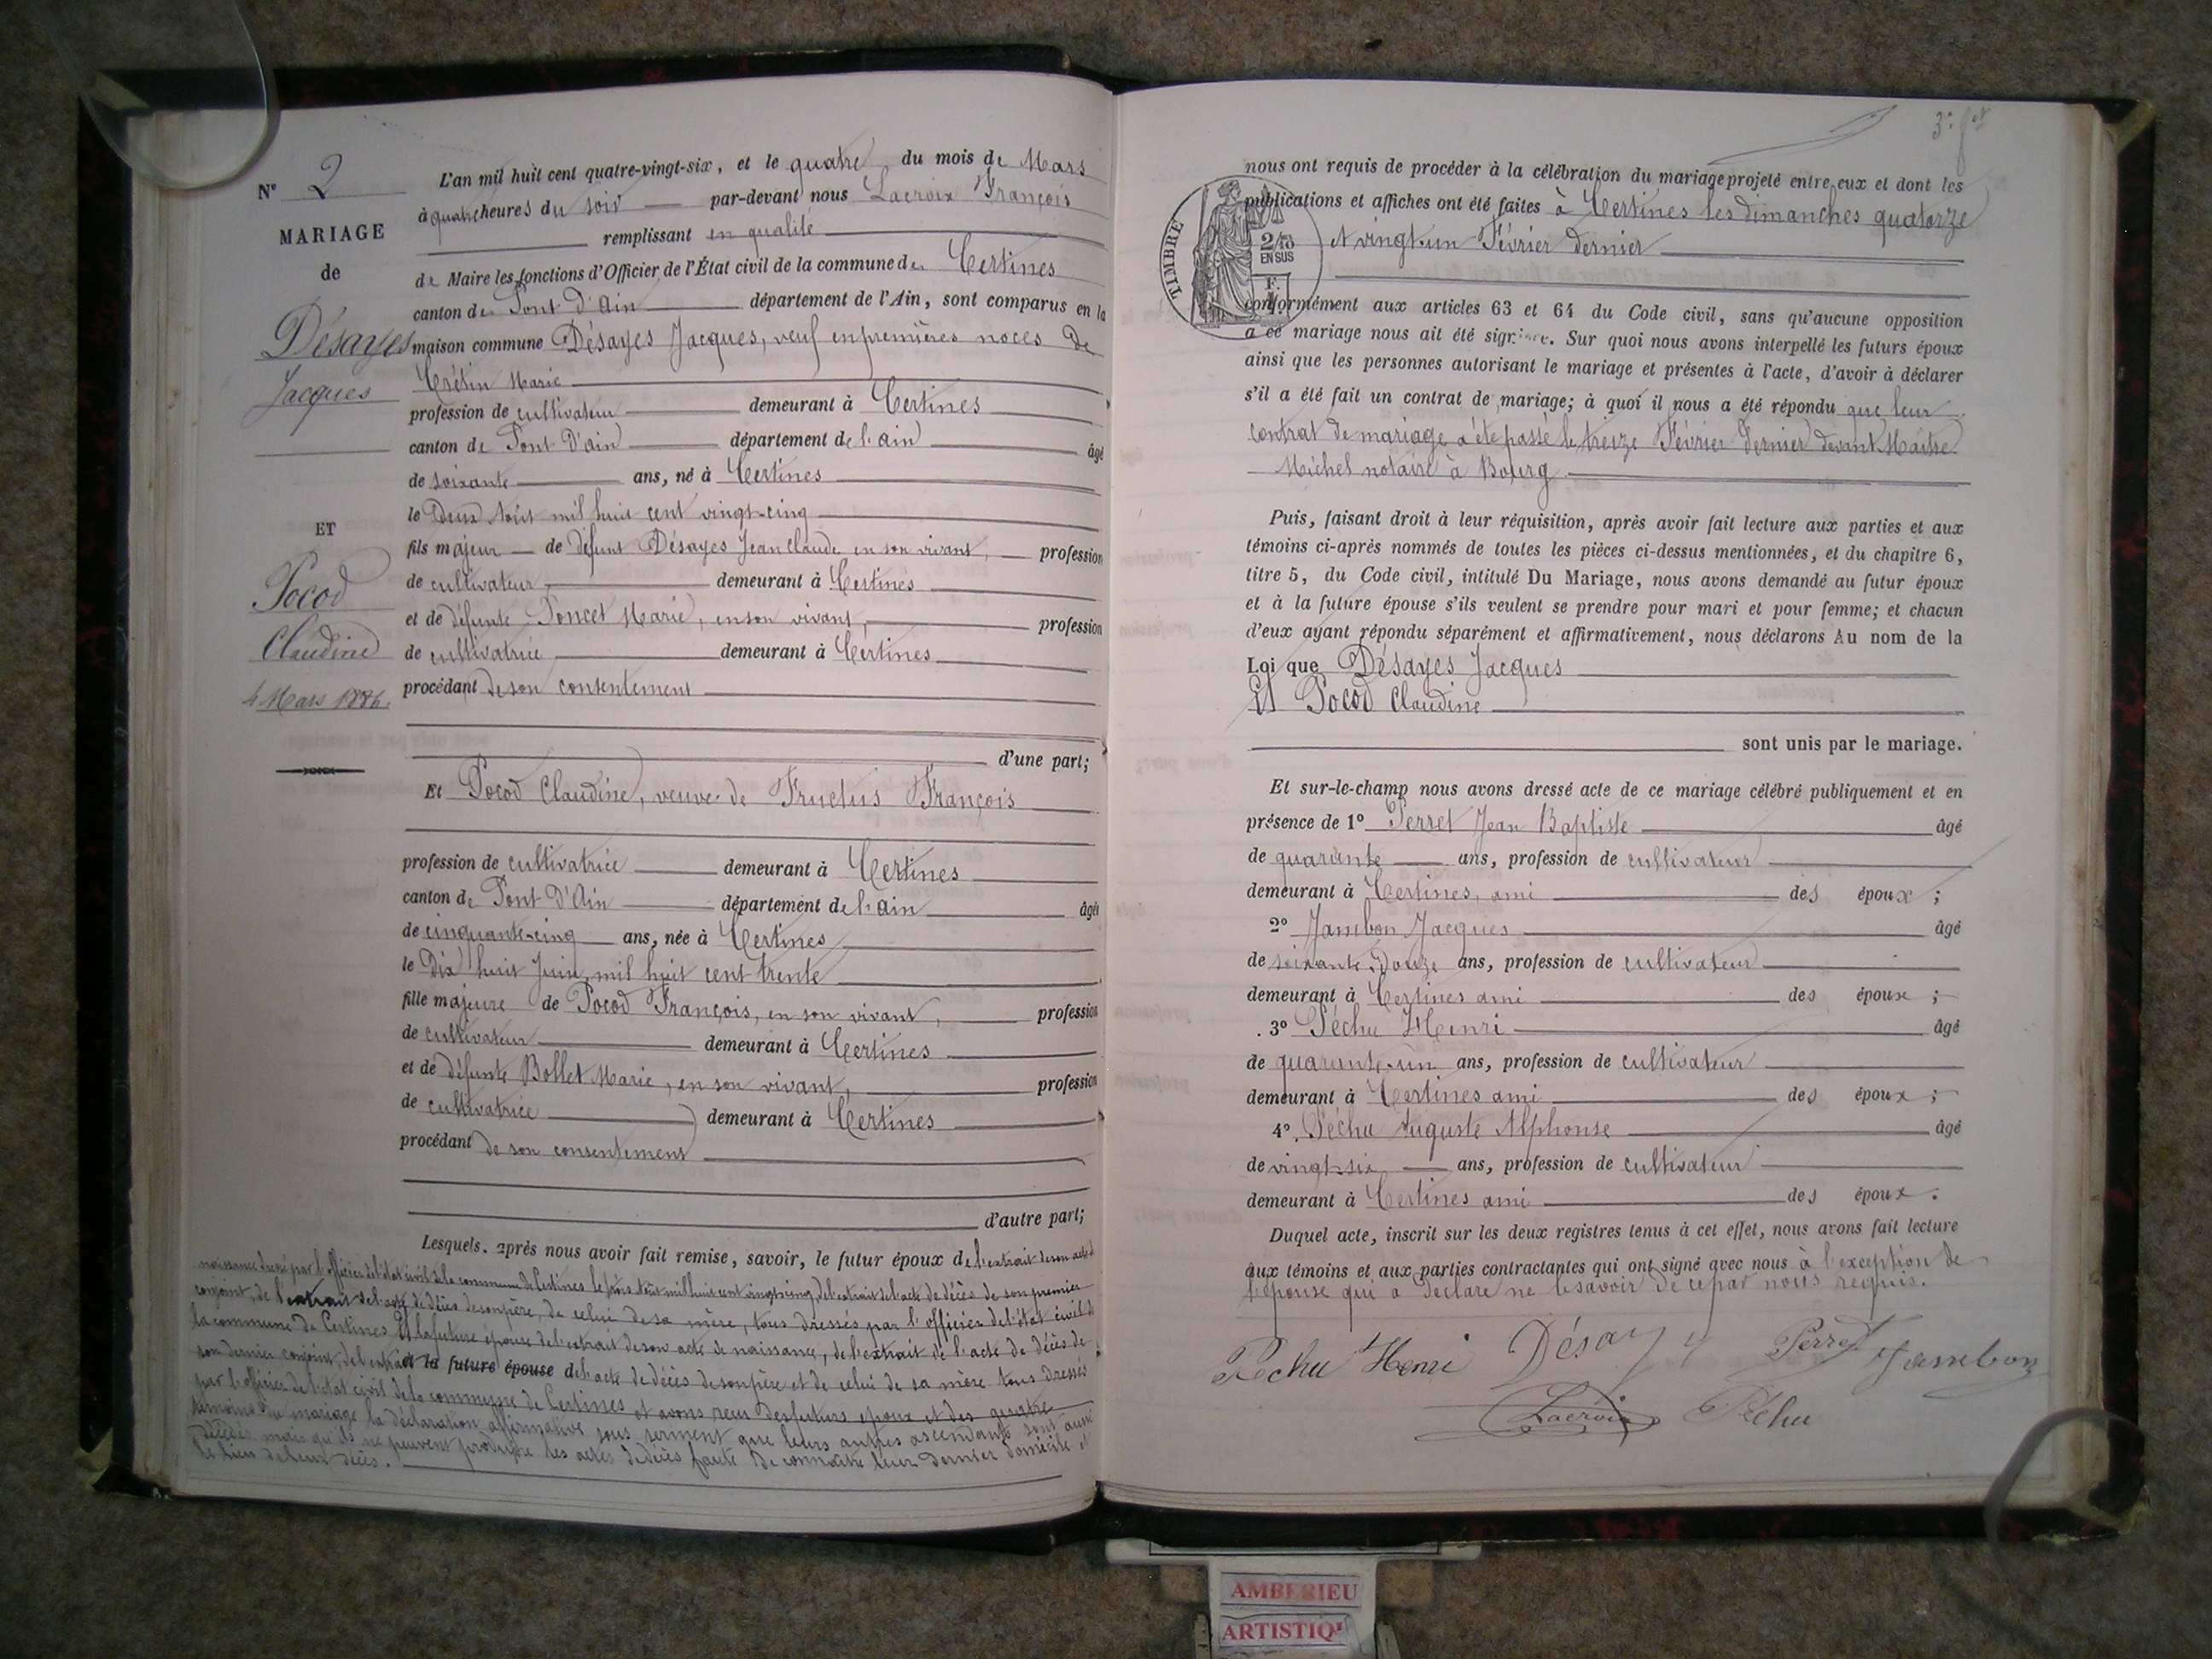 N° 2
MARIAGE
de
Désayes
Jacques
ET
Pocod
Claudine
4 Mars 1886.
L'an mil huit cent quatre-vingt-six, et le quatre du mois de Mars
à quatre heures du soir par-devant nous Lacroix François
remplissant en qualité
de Maire les fonctions d'Officier de l'État civil de la commune de Certines
canton de Pont d'Ain département de l'Ain, sont comparus en la
maison commune Désayes Jacques, veuf en premières noces de
Crétin Marie
profession de cultivateur demeurant à Certines
canton de Pont D'ain département de l'ain âgé
de soixante ans, né à Certines
le Deux Août mil huit cent vingt-cinq
fils majeur de défunt Désayes Jean Claude en son vivant, profession
de cultivateur demeurant à Certines
et de défunte Poncet Marie, en son vivant, profession
de cultivatrice demeurant à Certines
procédant de son consentement
d'une part;
Et Pocod Claudine, veuve de Fructus François
profession de cultivatrice demeurant à Certines
canton de Pont D'Ain département de l'ain âgée
de cinquante-cinq ans, née à Certines
le Dix huit Juin mil huit cent trente
fille majeure de Pocod François, en son vivant, profession
de cultivateur demeurant à Certines
et de défunte Bollet Marie, en son vivant, profession
de cultivatrice demeurant à Certines
procédant de son consentement
d'autre part;
Lesquels, après nous avoir fait remise, savoir, le futur époux de l'extrait de son acte d
naissance dressé par l'officier de l'état civil de la commune de Certines le trois Août mil huit cent vingt cinq, de l'extrait de l'acte de décès de son premier
conjoint, de l'extrait de l'acte de décès de son père, de celui de sa mère, tous dressés par l'officier de l'état civil de
la commune de Certines Et la future épouse de l'extrait de son acte de naissance, de l'extrait de l'acte de décès de
son dernier conjoint, de l'extrait et la future épouse de l'acte de décès de son père et de celui de sa mère tous dressés
par l'officier de l'état civil de la commune de Certines et avons reçu des futurs époux et des quatre
témoins du mariage la déclaration affirmative sous serment que leurs autres ascendants sont aussi
décédés mais qu'ils ne peuvent produire les actes de décès faute de connaître leur dernier domicile et
le lieu de leur décès.
nous ont requis de procéder à la célébration du mariage projeté entre eux et dont les
publications et affiches ont été faites à Certines les dimanches quatorze
et vingt-un Février dernier
TIMBRE
2/10
EN SUS
conformément aux articles 63 et 64 du Code civil, sans qu'aucune opposition
à ce mariage nous ait été signifiée. Sur quoi nous avons interpellé les futurs époux
ainsi que les personnes autorisant le mariage et présentes à l'acte, d'avoir à déclarer
s'il a été fait un contrat de mariage; à quoi il nous a été répondu que leur
contrat de mariage a été passé le treize Février dernier devant Maître
Michel notaire à Bourg
Puis, faisant droit à leur réquisition, après avoir fait lecture aux parties et aux
témoins ci-après nommés de toutes les pièces ci-dessus mentionnées, et du chapitre 6,
titre 5, du Code civil, intitulé Du Mariage, nous avons demandé au futur époux
et à la future épouse s'ils veulent se prendre pour mari et pour femme; et chacun
d'eux ayant répondu séparément et affirmativement, nous déclarons Au nom de la
Loi que Désayes Jacques
Et Pocod Claudine
sont unis par le mariage.
Et sur-le-champ nous avons dressé acte de ce mariage célébré publiquement et en
présence de 1° Perret Jean Baptiste âgé
de quarante ans, profession de cultivateur
demeurant à Certines, ami des époux;
2° Jambon Jacques âgé
de soixante-douze ans, profession de cultivateur
demeurant à Certines ami des époux;
3° Péchu Henri âgé
de quarante-un ans, profession de cultivateur
demeurant à Certines ami des époux;
4° Péchu Auguste Alphonse âgé
de vingt-six ans, profession de cultivateur
demeurant à Certines ami des époux.
Duquel acte, inscrit sur les deux registres tenus à cet effet, nous avons fait lecture
aux témoins et aux parties contractantes qui ont signé avec nous à l'exception de
l'épouse qui a déclaré ne le savoir de ce par nous requis.
Péchu Henri Désay Perret Jambon
Lacroix Péchu
AMBERIEU
ARTISTIQ